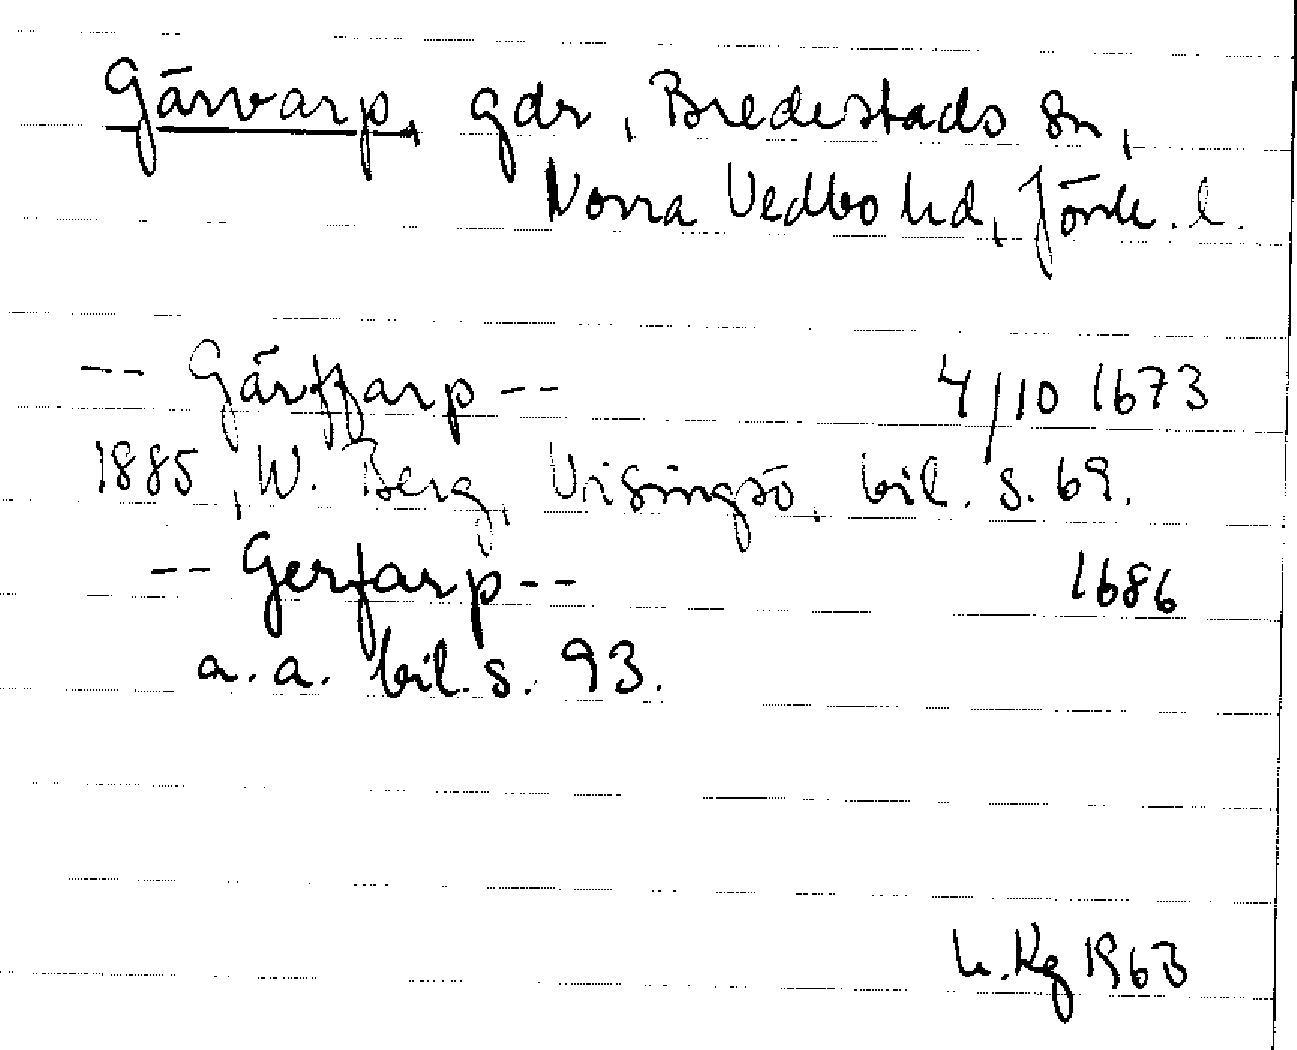 Gärvarp, gdr, Bredestads sn,
Norra Vedbo hd, Jönk. l.
-- Gärffarp -- 4/10 1673
1885, W. Berg, Visingsö, bil. s. 69.
-- Gerfarp -- 1686
a. a. bil. s. 93.
h. Kg 1963